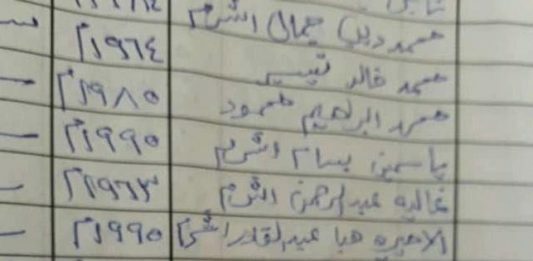 محمد ديب جمال اشرم
محمد خالد تيسير ١٩٦٤م
محمد ابراهيم حمود ١٩٨٥م
ياسمين بسام اشرم ١٩٩٥م
غاليه عبدالرحمن اشرم ١٩٦٣م
الاميره هبا عبدالقادر اشرم ١٩٩٥م